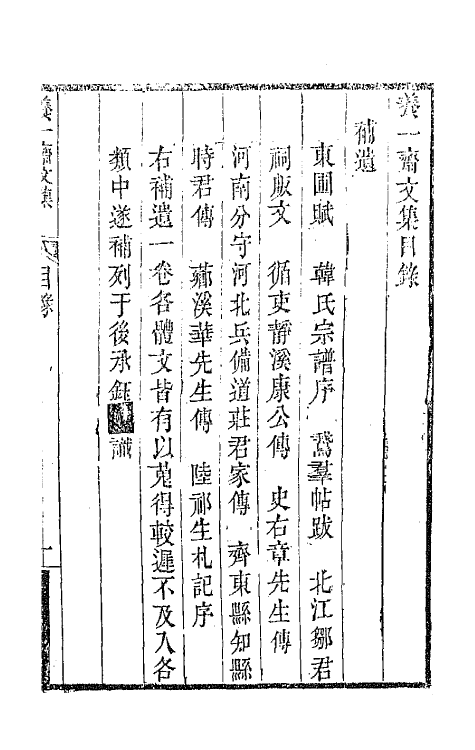 養一齋文集目錄
補遺
東圃賦　韓氏宗譜序　鵞羣帖跋　北江鄒君
祠版文　循吏靜溪康公傳　史右章先生傳
河南分守河北兵備道莊君家傳　齊東縣知縣
時君傳　蘅溪華先生傳　陸祁生札記序
右補遺一卷各體文皆有以蒐得較遲不及入各
類中遂補列于後承鈺　識
養一齋文集　目錄　一